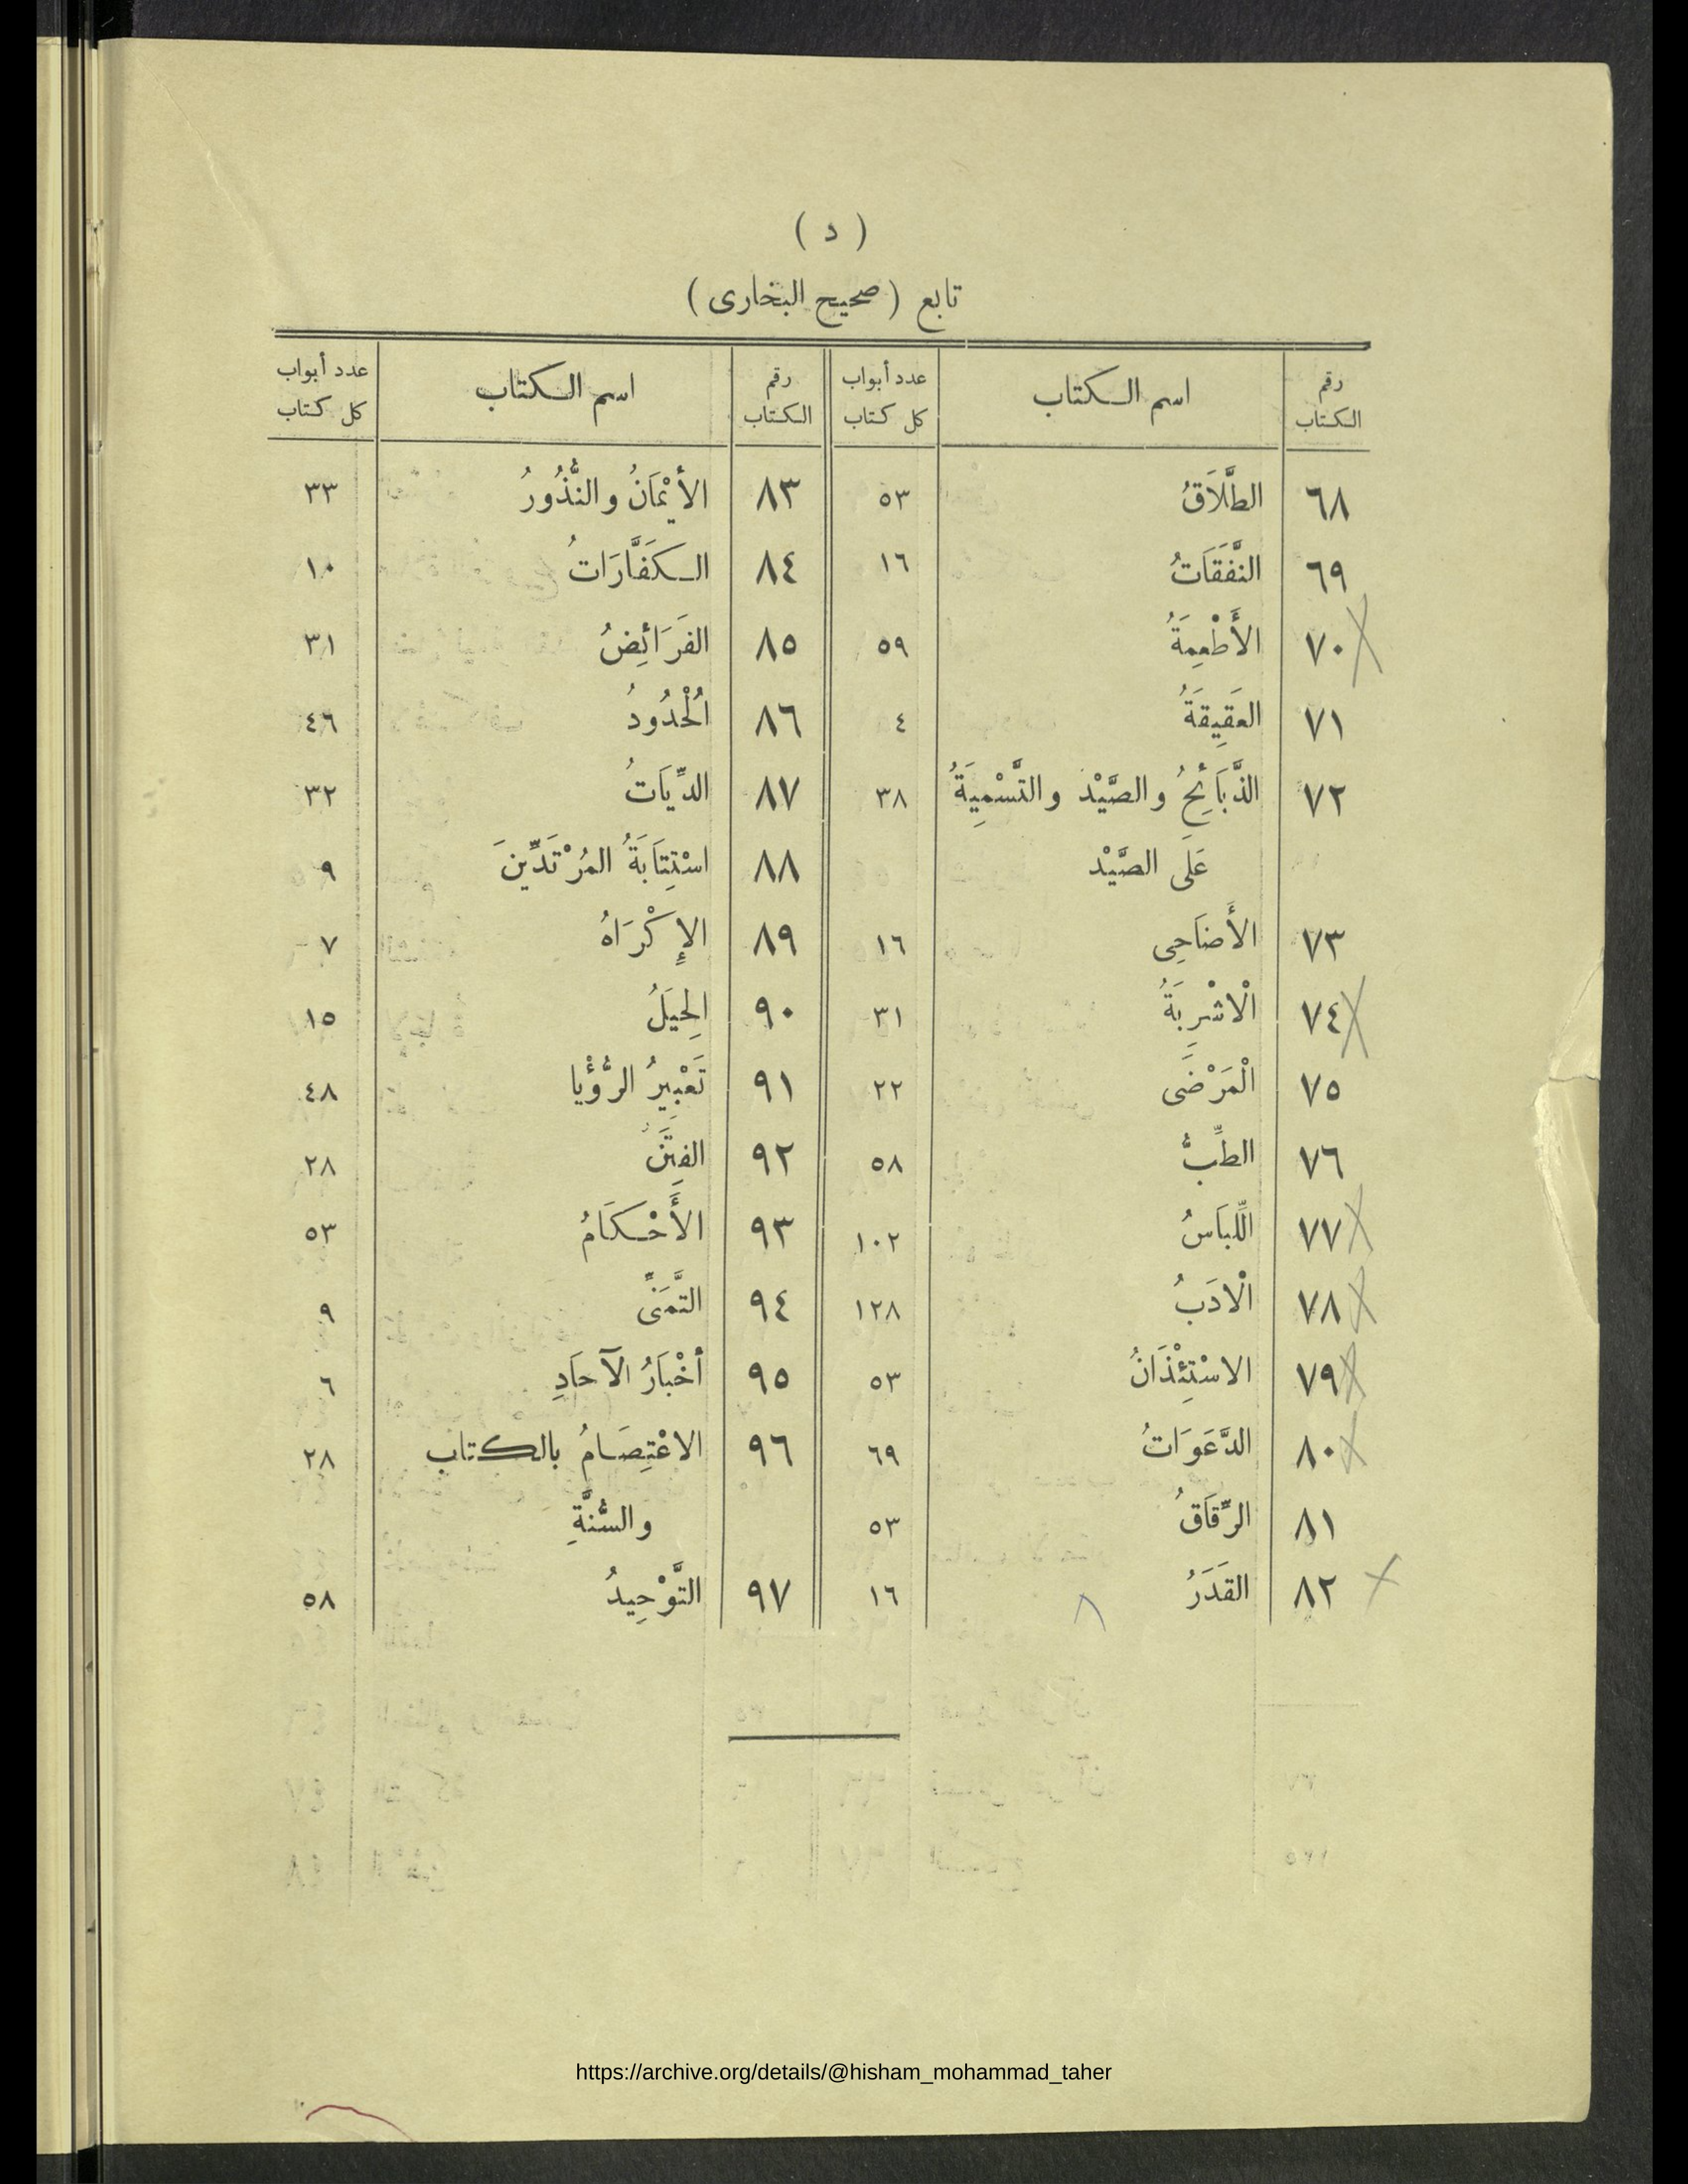 ( د )
تابع ( صحيح البخارى )
رقم الكتاب | اسم الكتاب | عدد أبواب كل كتاب | رقم الكتاب | اسم الكتاب | عدد أبواب كل كتاب
٦٨ | الطَّلَاقُ | ٥٣ | ٨٣ | الأَيْمَانُ والنُّذُورُ | ٣٣
٦٩ | النَّفَقَاتُ | ١٦ | ٨٤ | الكَفَّارَاتُ | ١٠
٧٠ | الأَطْعِمَةُ | ٥٩ | ٨٥ | الفَرَائِضُ | ٣١
٧١ | العَقِيقَةُ | ٤ | ٨٦ | اُلْحُدُودُ | ٤٦
٧٢ | الذَّبَائِحُ والصَّيْد والتَّسْمِيَةُ | ٣٨ | ٨٧ | الدِّيَاتُ | ٣٢
عَلَى الصَّيْد | ٨٨ | اسْتِتَابَةُ المُرْتَدِّينَ | ٩
٧٣ | الأَضَاحِى | ١٦ | ٨٩ | الإِكْرَاهُ | ٧
٧٤ | الْاشْرِبَةُ | ٣١ | ٩٠ | الحِيَلُ | ١٥
٧٥ | الْمَرْضَى | ٢٢ | ٩١ | تَعْبِيرُ الرُّؤْيا | ٤٨
٧٦ | الطِّبُّ | ٥٨ | ٩٢ | الفِتَنُ | ٢٨
٧٧ | اللِّبَاسُ | ١٠٢ | ٩٣ | الأَحْكَامُ | ٥٣
٧٨ | الْادَبُ | ١٢٨ | ٩٤ | التَّمَنِّى | ٩
٧٩ | الاسْتِئْذَانُ | ٥٣ | ٩٥ | أَخْبَارُ الآحَادِ | ٦
٨٠ | الدَّعَوَاتُ | ٦٩ | ٩٦ | الاعْتِصَامُ بالكتاب | ٢٨
٨١ | الرِّقَاقُ | ٥٣ | والسُّنَّةِ
٨٢ | القَدَرُ | ١٦ | ٩٧ | التَّوْحِيدُ | ٥٨
https://archive.org/details/@hisham_mohammad_taher